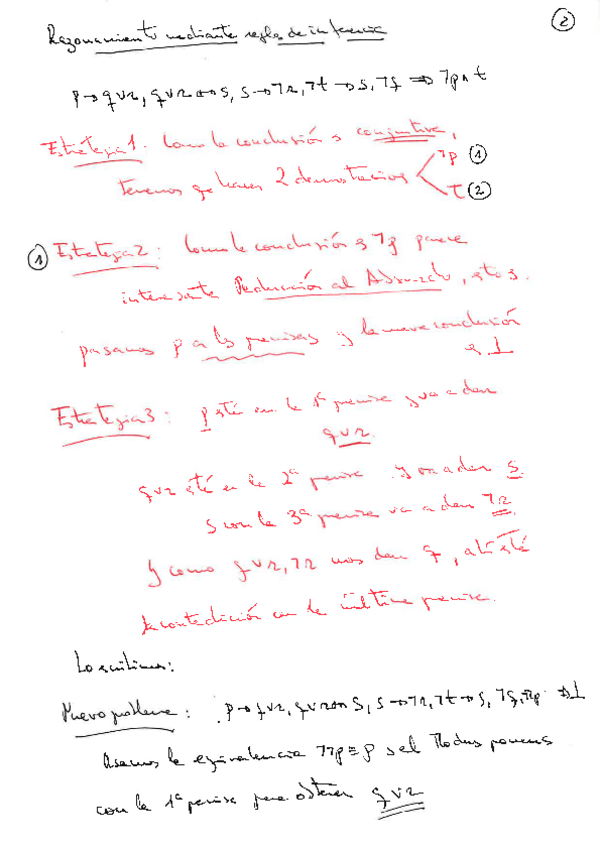 ②
Razonamiento mediante reglas de inferencia
p→q∨r, q∨r↔s, s→¬r, ¬t→s, ¬q ⇒ ¬p∧t
Estrategia 1. Como la conclusión es conjuntiva,
tenemos que hacer 2 demostraciones ¬p ① t ②
① Estrategia 2: Como la conclusión es ¬p parece
interesante Reducción al Absurdo, esto es
pasamos p a las premisas y la nueva conclusión
es ⊥
Estrategia 3: p está en la 1ª premisa y va a dar
q∨r.
q∨r está en la 2ª premisa y va a dar s.
s con la 3ª premisa va a dar ¬r
y como q∨r, ¬r nos dan q, ahí está
la contradición con la última premisa.
Lo escribimos:
Nuevo problema: p→q∨r, q∨r↔s, s→¬r, ¬t→s, ¬q, ¬¬p ⇒ ⊥
Usamos la equivalencia ¬¬p≡p y el Modus ponens
con la 1ª premisa para obtener q∨r